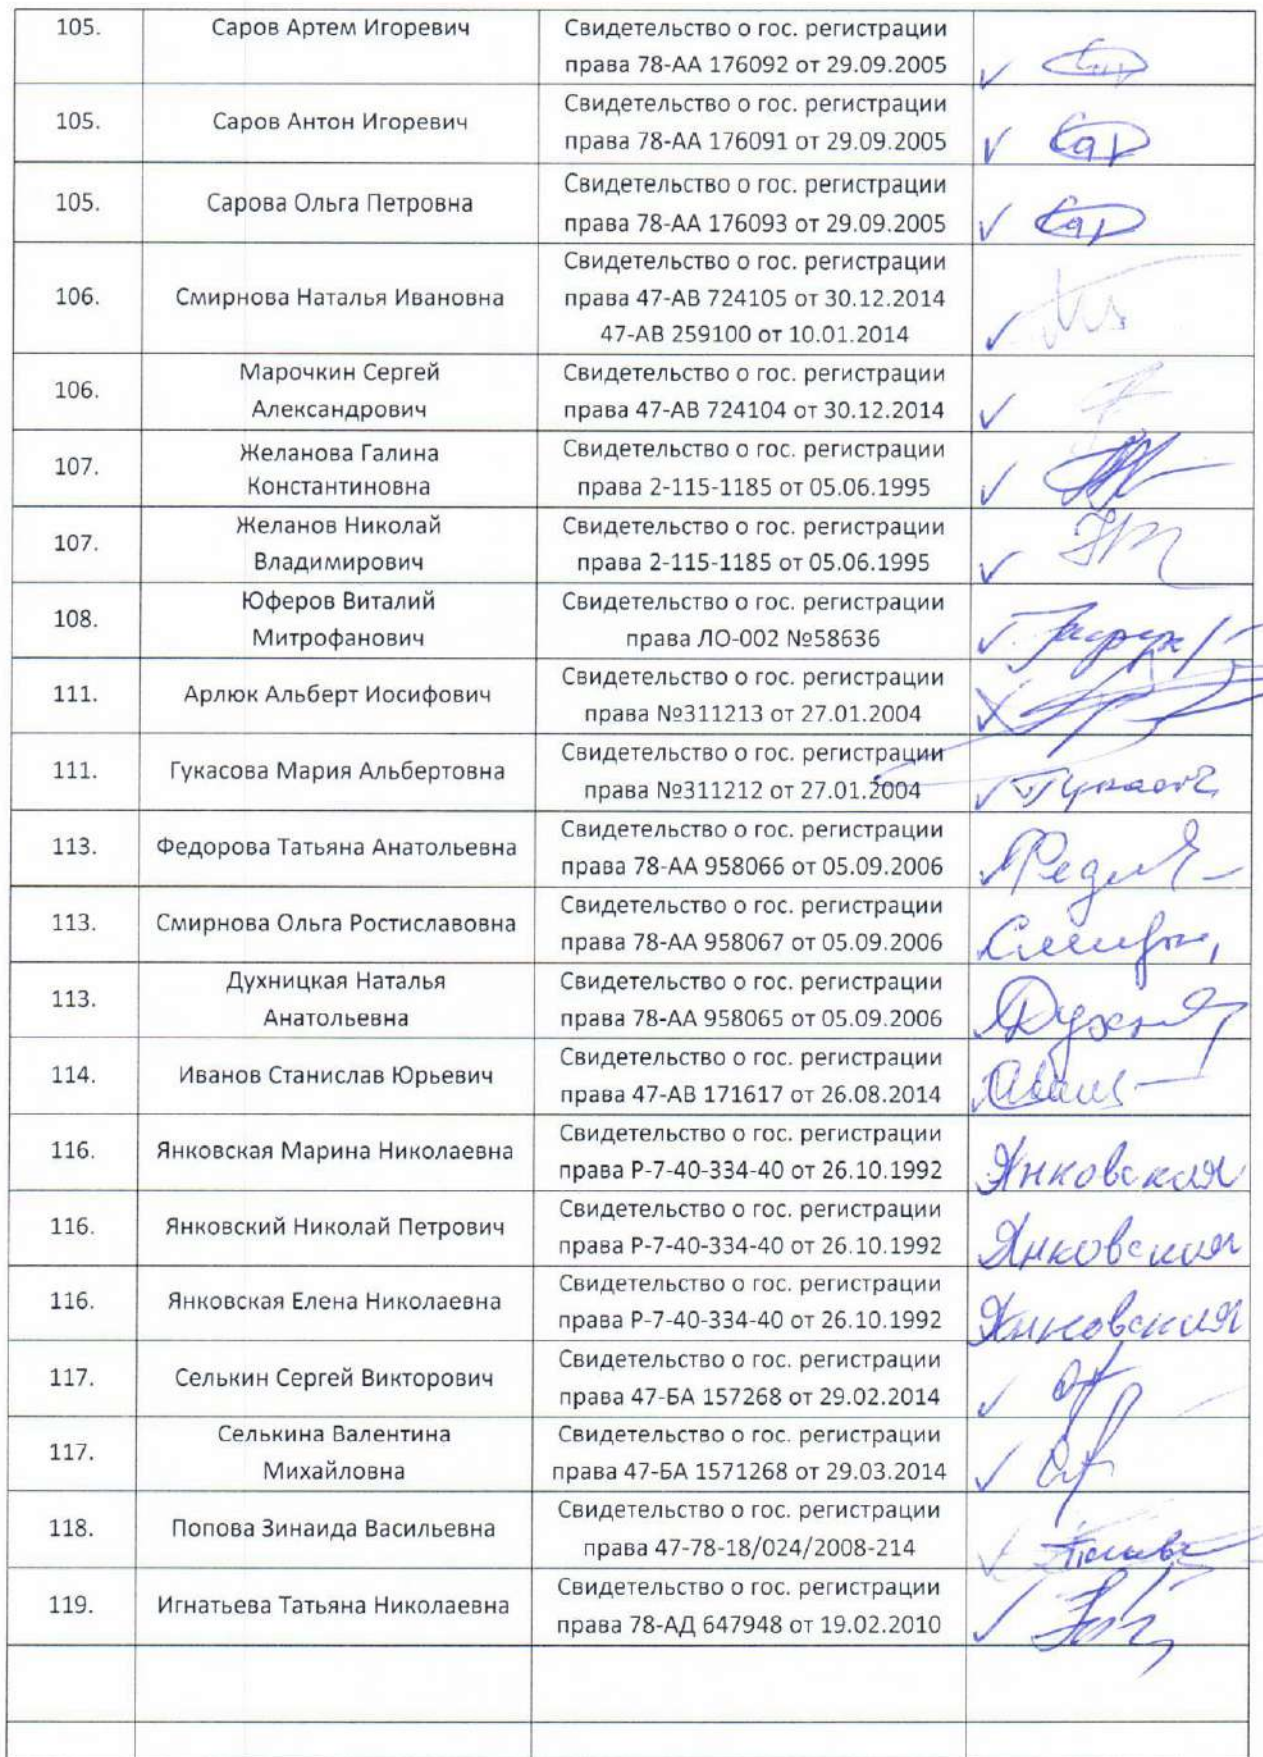 105.
Саров Артем Игоревич
Свидетельство о гос. регистрации
права 78-АА 176092 от 29.09.2005
105.
Саров Антон Игоревич
Свидетельство о гос. регистрации
права 78-АА 176091 от 29.09.2005
Сар
105.
Сарова Ольга Петровна
Свидетельство о гос. регистрации
права 78-АА 176093 от 29.09.2005
Сар
106.
Смирнова Наталья Ивановна
Свидетельство о гос. регистрации
права 47-АВ 724105 от 30.12.2014
47-АВ 259100 от 10.01.2014
106.
Марочкин Сергей
Александрович
Свидетельство о гос. регистрации
права 47-АВ 724104 от 30.12.2014
107.
Желанова Галина
Константиновна
Свидетельство о гос. регистрации
права 2-115-1185 от 05.06.1995
107.
Желанов Николай
Владимирович
Свидетельство о гос. регистрации
права 2-115-1185 от 05.06.1995
108.
Юферов Виталий
Митрофанович
Свидетельство о гос. регистрации
права ЛО-002 №58636
111.
Арлюк Альберт Иосифович
Свидетельство о гос. регистрации
права №311213 от 27.01.2004
111.
Гукасова Мария Альбертовна
Свидетельство о гос. регистрации
права №311212 от 27.01.2004
113.
Федорова Татьяна Анатольевна
Свидетельство о гос. регистрации
права 78-АА 958066 от 05.09.2006
113.
Смирнова Ольга Ростиславовна
Свидетельство о гос. регистрации
права 78-АА 958067 от 05.09.2006
113.
Духницкая Наталья
Анатольевна
Свидетельство о гос. регистрации
права 78-АА 958065 от 05.09.2006
114.
Иванов Станислав Юрьевич
Свидетельство о гос. регистрации
права 47-АВ 171617 от 26.08.2014
116.
Янковская Марина Николаевна
Свидетельство о гос. регистрации
права Р-7-40-334-40 от 26.10.1992
Янковская
116.
Янковский Николай Петрович
Свидетельство о гос. регистрации
права Р-7-40-334-40 от 26.10.1992
Янковская
116.
Янковская Елена Николаевна
Свидетельство о гос. регистрации
права Р-7-40-334-40 от 26.10.1992
Янковская
117.
Селькин Сергей Викторович
Свидетельство о гос. регистрации
права 47-БА 157268 от 29.02.2014
117.
Селькина Валентина
Михайловна
Свидетельство о гос. регистрации
права 47-БА 1571268 от 29.03.2014
118.
Попова Зинаида Васильевна
Свидетельство о гос. регистрации
права 47-78-18/024/2008-214
119.
Игнатьева Татьяна Николаевна
Свидетельство о гос. регистрации
права 78-АД 647948 от 19.02.2010